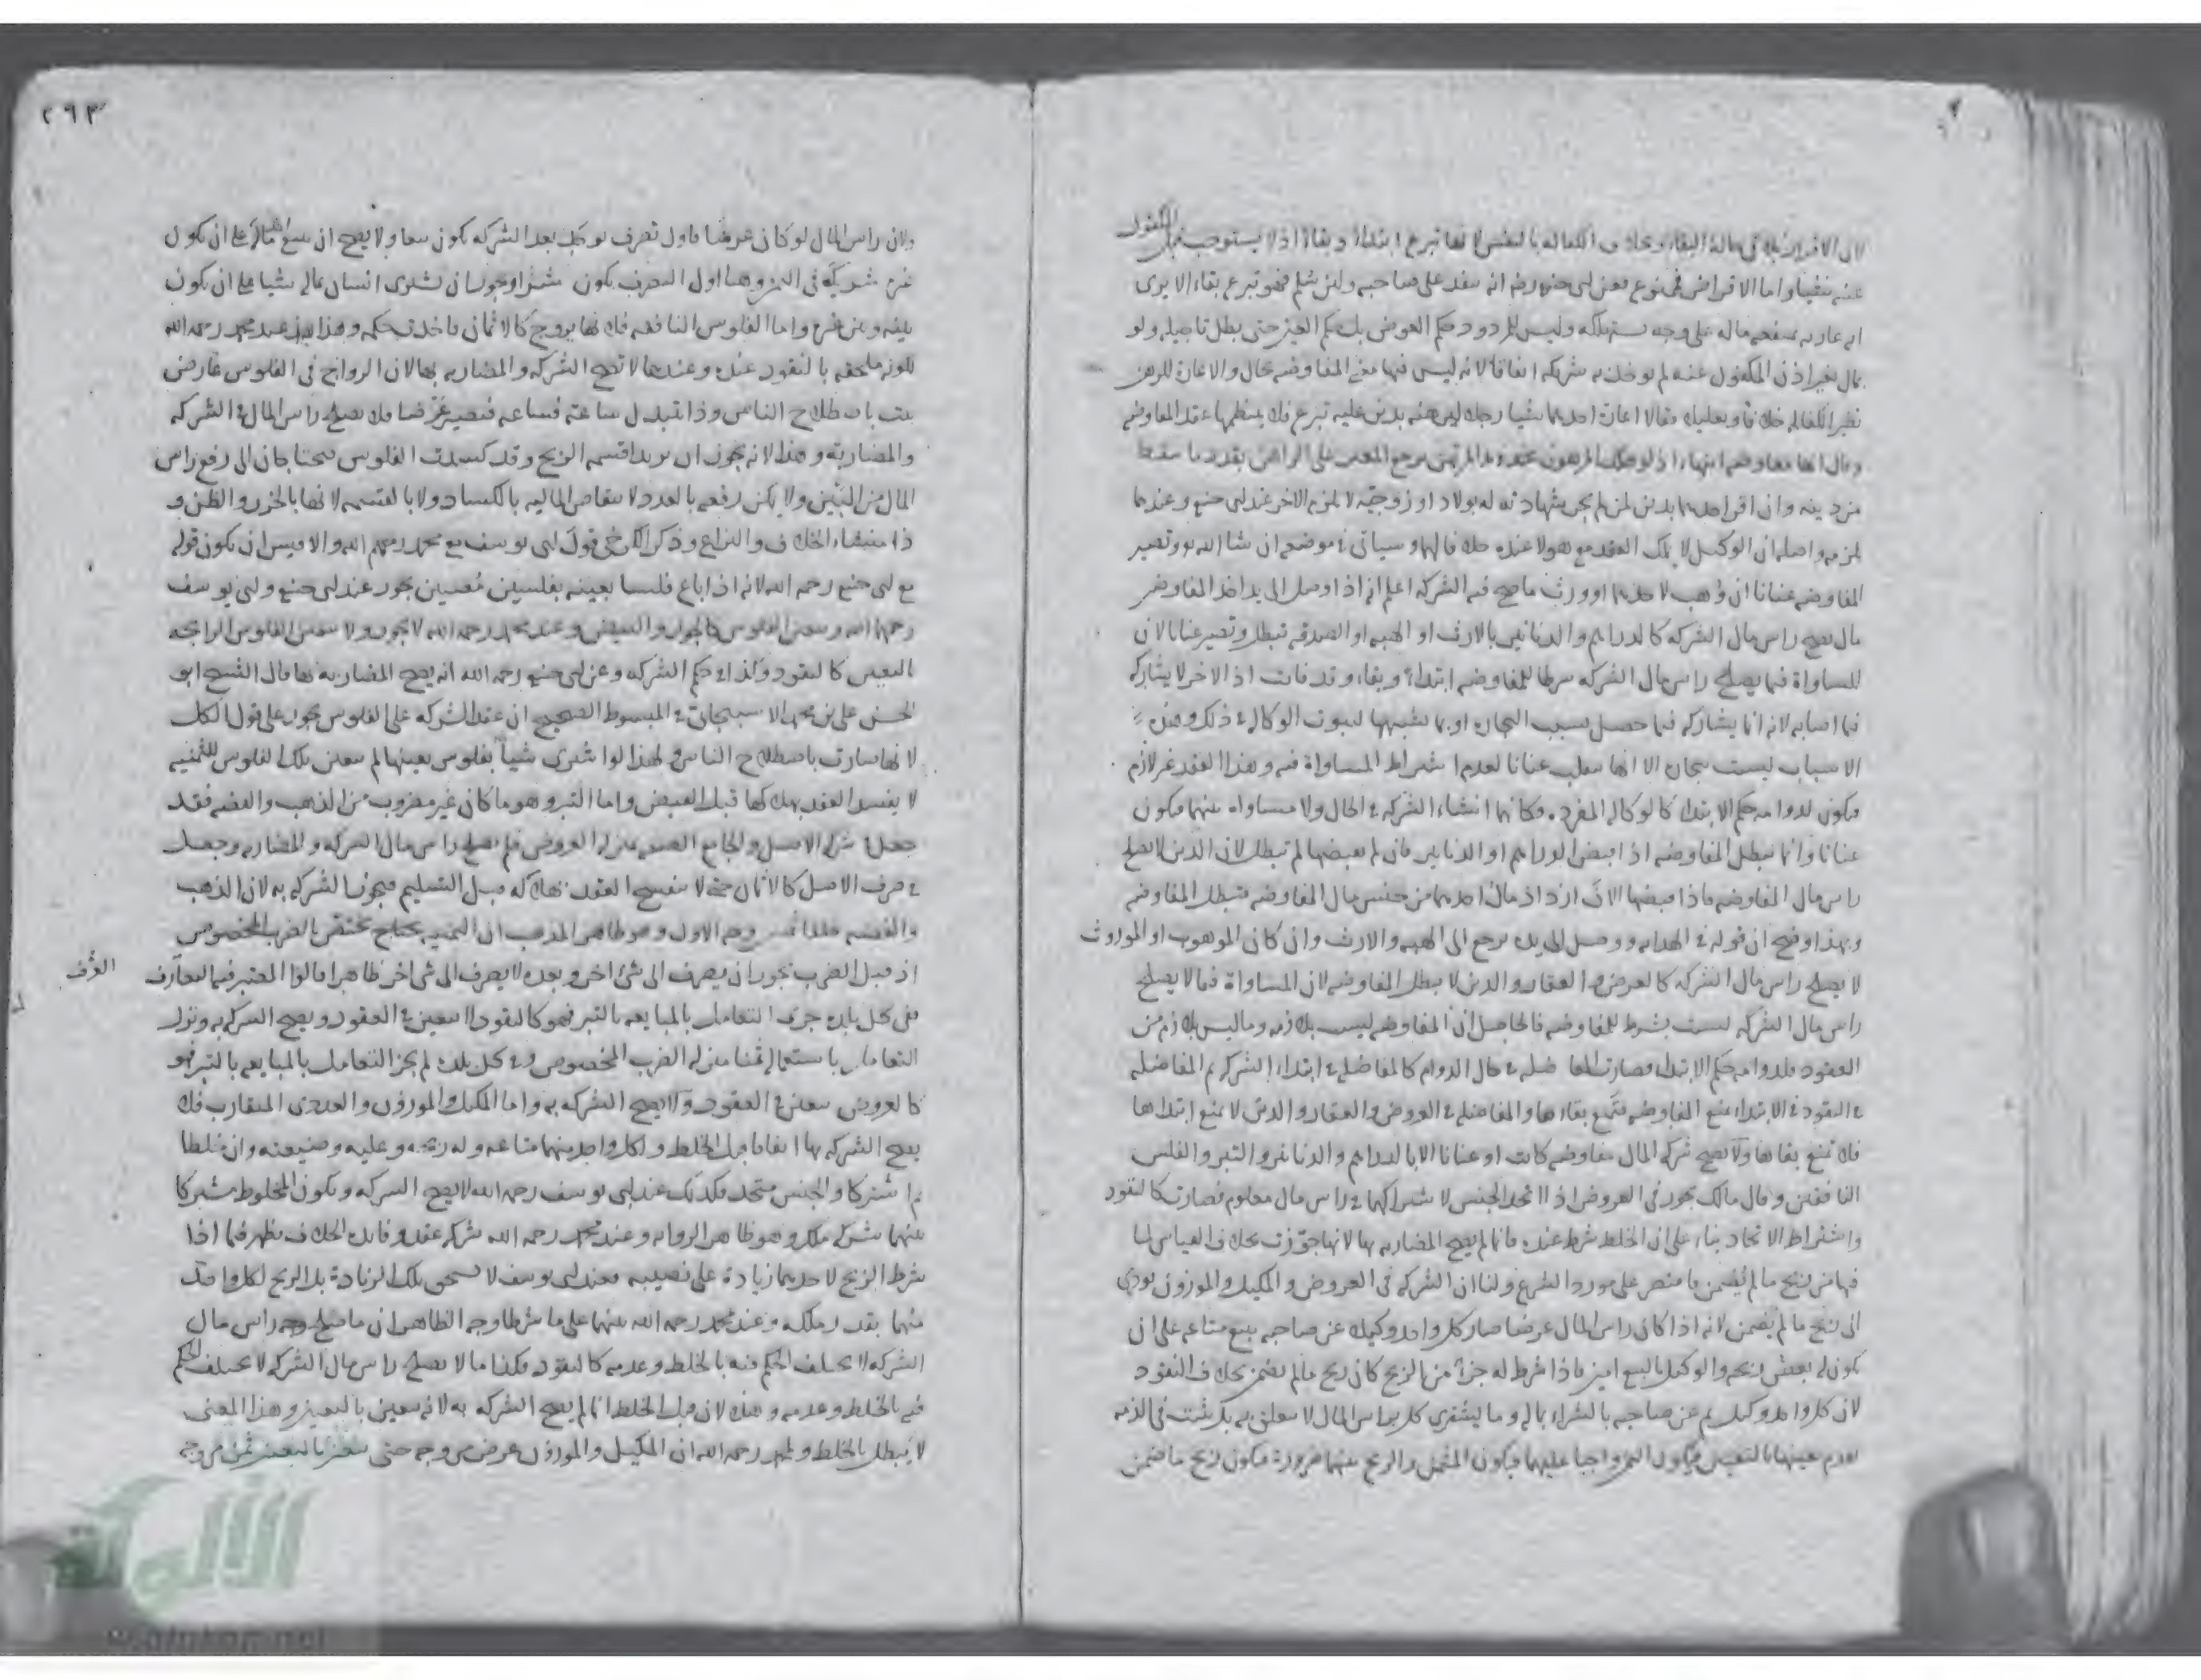 لان الاقرار يلاقي حالة البقاء وبخلاف الكفالة بالنفس لانها تبرع ابتداء وبقاء اذ لا يستوجب قبل المكفول
عنه شيئا واما الاقراض فممنوع فعن ابي حنيفه رضه انه ينفذ على صاحبه ولئن سلم فهو تبرع بقاء الا يرى
انه عاريه ماله على وجه وليس للمردود حكم العوض بل حكم العين حتى بطل تاجيله ولو
بمال بغير اذن المكفول عنه لم يؤخذ به شريكه اتفاقا لانه ليس فيها معنى المفاوضه بحال والاعارة للرهن
نظير الكفاله خلافا وتعليلا فقالا اعارة احدهما شيئا رجلا ليرهنه بدين عليه تبرع فلا ينتظمها عقد المفاوضه
وقال انها معاوضه انتهاء اذ لو هلك المرهون عند المرتهن يرجع المعير على الراهن بقدر ما سقط
من دينه وان اقر احدهما بدين لمن لم يجز شهادته له بولاد او زوجيه لا يلزم الاخر عند ابي حنيفه وعندهما
يلزمه واصله ان الوكيل لا يملك العقد مع هولا عنده خلافا لهما وسياتي في موضعه ان شا الله تع وتصير
المفاوضه عنانا ان وُهب لاحدهما او ورث ما تصح فيه الشركه اعلم انه اذا وصل الى يد احد المفاوضين
مال يصح راس مال الشركه كالدراهم والدنانير بالارث او الهبه او الصدقه تبطل وتصير عنانا لان
المساواة فيما يصلح راس مال الشركه شرط للمفاوضه ابتداء وبقاء وقد فاتت اذ الاخر لا يشاركه
فيما اصابه لانه انما يشاركه فيما حصل بسبب التجاره او بما يشبهها لثبوت الوكالة في ذلك وهذه
الاسباب ليست تجارة الا انها تنقلب عنانا لعدم اشتراط المساواة فيه وهذا العقد غير لازم
فيكون لدوامه حكم الابتداء كالوكاله المفرده فكانهما انشاء الشركه في الحال ولا مساواه بينهما فيكون
عنانا وانما تبطل المفاوضه اذا قبض الدراهم او الدنانير فان لم يقبضها لم تبطل لان الدين لا يصلح
راس مال المفاوضه فاذا قبضها الان ازداد مال احدهما من جنس مال المفاوضه فتبطل المفاوضه
وبهذا وضح ان قوله في الهدايه ووصل الى يده يرجع الى الهبه والارث وان كان الموهوب او الموروث
لا يصلح راس مال الشركه كالعروض والعقار والدين لا يبطل المفاوضه لان المساواة فيما لا يصلح
راس مال الشركه ليست بشرط للمفاوضه فالحاصل ان المفاوضه ليست بلازمه وما ليس بلازم من
العقود فلدوامه حكم الابتداء فصارت المفاضله في حال الدوام كالمفاضله في ابتداء الشركه ثم المفاضله
في النقود في الابتداء يمنع المفاوضه فتمنع بقاءها والمفاضله في العروض والعقار والدين لا يمنع ابتداها
فلا تمنع بقاها ولا تصح شركه المال مفاوضه كانت او عنانا الا بالدراهم والدنانير والتبر والفلس
النافقين وقال مالك يجوز في العروض اذا اتحد الجنس لاشتراكهما في راس مال معلوم فصارت كالنقود
واشتراط الاتحاد بناء على ان الخلط شرط عنده فانما لم يصح المضاربه بها لانها جوزت بخلاف القياس لما
فيها من ربح ما لم يُضمن فاقتصر على مورد الشرع ولنا ان الشركه في العروض والمكيل والموزون يودي
الى ربح ما لم يضمن لانه اذا كان راس المال عرضا صار كل واحد وكيلا عن صاحبه ببيع متاعه على ان
يكون له بعض ربحه والوكيل بالبيع امين فاذا شرط له جزء من الربح كان ربح ما لم يضمن بخلاف النقود
لان كل واحد وكيل ثم عن صاحبه بالشراء بماله وما يشتري كل براس المال لا يتعلق به بل يثبت في الذمه
لعدم تعينها بالتعيين فيكون الثمن واجبا عليهما فيكون المشترى والربح بينهما ضرورة فيكون ربح ما ضمن
٢٩٣
ولان راس المال لو كان عروضا فاول تصرف بوكيل بعد الشركه يكون بيعا ولا يصح ان يبيع ماله على ان يكون
غيره شريكه في الثمن وهنا اول التصرف يكون شراء ويجوز ان يشتري انسان بماله شيئا على ان يكون
بينه وبين غيره واما الفلوس النافقه فلانها يروج كالاثمان فاخذت حكمه وهذا عند محمد رحمه الله
لكونه ملحقه بالنقود عنده وعندهما لا تصح الشركه والمضاربه بها لان الرواج في الفلوس عارض
ثبت باصطلاح الناس وذا يتبدل ساعه فساعه فتصير عرضا فلا يصلح راس المال في الشركه
والمضاربة وهذا لانه يجوز ان يريدا قسمه الربح وقد كسدت الفلوس فيحتاجان الى رفع راس
المال من البين ولا يمكن رفعه بالعدد لانتقاص الماليه بالكساد ولا بالقيمه لانها بالحزر والظن و
ذا منشاء الخلاف والنزاع وذكر الكرخي قول ابي يوسف مع محمد رحمهم الله والاقيس ان يكون قوله
مع ابي حنيفه رحمه الله لانه اذا باع فلسا بعينه بفلسين معينين يجوز عند ابي حنيفه وابي يوسف
رحمهما الله وعند محمد رحمه الله لا يجوز ولا يتعين الفلوس الرابحه
بالتعيين كالنقود وكذا في حكم الشركه وعن ابي حنيفه رحمه الله انه يصح المضاربه بها قال الشيخ ابو
الحسن علي بن محمد الاسبيجابي في المبسوط الصحيح ان عقد الشركه على الفلوس يجوز على قول الكل
لانها صارت باصطلاح الناس ولهذا لو اشترى شيأ بفلوس بعينها لم يتعين تلك الفلوس للثمنيه
لا يفسد العقد بهلاكها قبل القبض واما التبر وهو ما كان غير مضروب من الذهب والفضه فقد
جعل في شركه الاصل والجامع الصغير بمنزله العروض فلم يصلح راس مال الشركه والمضاربه وجعل
في صرف الاصل كالاثمان حتى لا ينفسخ العقد بهلاكه قبل التسليم فيجوز الشركه به لان الذهب
والفضه خلقا وجه الاول وهو ظاهر المذهب ان الثمنيه يحتاج تختص بالضرب المخصوص
اذ قبل الضرب يجوز ان يصرف الى شئ اخر وبعده لا يصرف الى شئ اخر ظاهرا قالوا المعتبر فيه التعارف
العُرف
ففي كل بلده جرى التعامل بالمبايعه بالتبر فهو كالنقود لا يتعين في العقود ويصح الشركه به ونزل
التعامل باستعماله ثمنا منزله الضرب المخصوص وفي كل بلده لم يجز التعامل بالمبايعه بالتبر فهو
كالعروض يتعين في العقود ولا يصح الشركه به واما المكيل والموزون والعددي المتقارب فلا
يصح الشركه بها اتفاقا قبل الخلط ولكل واحد منهما متاعه وله ربحه وعليه وضيعته وان خلطا
ثم اشتركا والجنس متحد فكذلك عند ابي يوسف رحمه الله لا يصح الشركه ويكون المخلوط مشتركا
بينهما شركه ملك وهو ظاهر الروايه وعند محمد رحمه الله شركه عقد وفائده الخلاف يظهر فيما اذا
شرط الربح لاحدهما زيادة على نصيبه فعند ابي يوسف لا يستحق تلك الزيادة بل الربح لكل واحد
منهما بقدر ملكه وعند محمد رحمه الله بينهما على ما شرطا وجه الظاهر ان ما صلح راس مال
الشركه لا يختلف الحكم فيه بالخلط وعدمه كالنقود فكذا ما لا يصلح راس مال الشركه لا يختلف الحكم
فيه بالخلط وعدمه وهذا لان قبل الخلط انما لم يصح الشركه به لانه يتعين بالتعيين وهذا المعنى
لا يبطل بالخلط ولمحمد رحمه الله ان المكيل والموزون عرض من وجه حتى يتعين بالتعيين ثمن من وجه
الألوكة